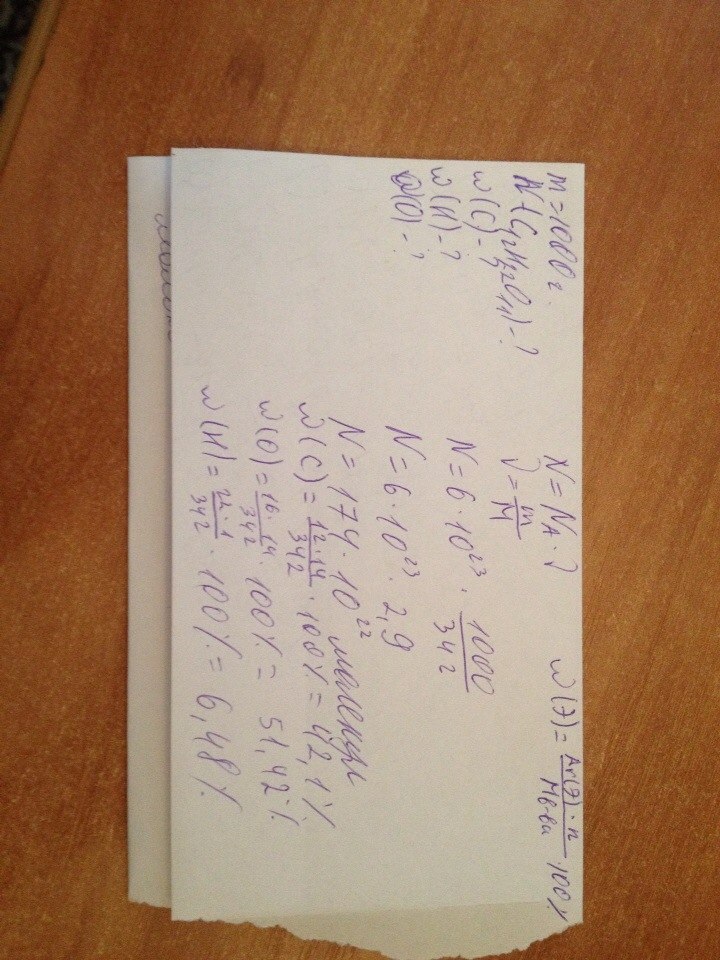 m = 1000 г.
N(C₁₂H₂₂O₁₁) - ?
w(C) - ?
w(H) - ?
w(O) - ?
N = Nₐ · ν
ν = m/M
N = 6 · 10²³ · 1000/342
N = 6 · 10²³ · 2,9
N = 174 · 10²² молекул
w(C) = 12·14/342 · 100% = 42,1%
w(O) = 16·14/342 · 100% = 51,42%
w(H) = 22·1/342 · 100% = 6,48%
w(Э) = Ar(Э) · n/Mв-ва · 100%